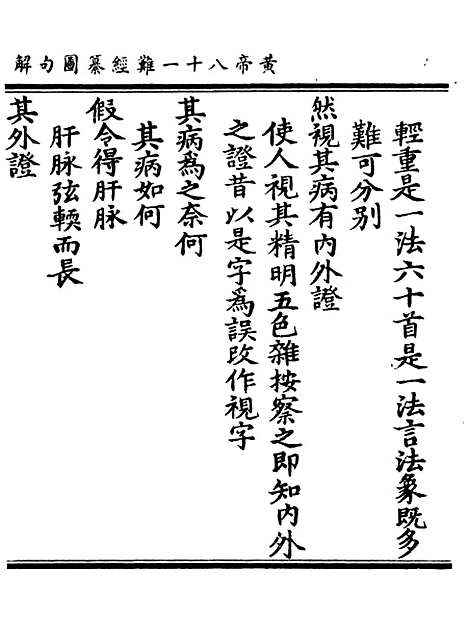 黃帝八十一難經纂圖句解
輕重是一法六十首是一法言法象既多
難可分别
然視其病有內外證
使人視其精明五色雜按察之即知內外
之證昔以是字爲誤改作視字
其病爲之奈何
其病如何
假令得肝脉
肝脉弦輭而長
其外證